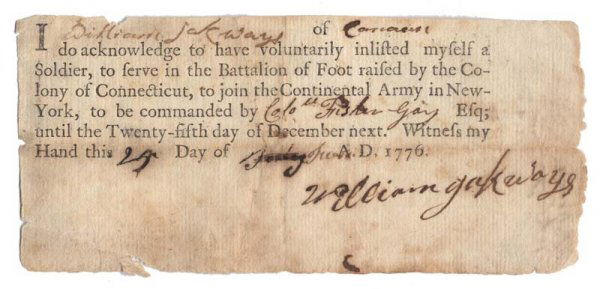 I William Jakways of Canaan
do acknowledge to have voluntarily inlisted myself a
Soldier, to serve in the Battalion of Foot raised by the Co-
lony of Connecticut, to join the Continental Army in New-
York, to be commanded by Colo.ll Fisher Gay Esq;
until the Twenty-fifth day of December next. Witness my
Hand this 29 Day of June A.D. 1776.
William Jakways